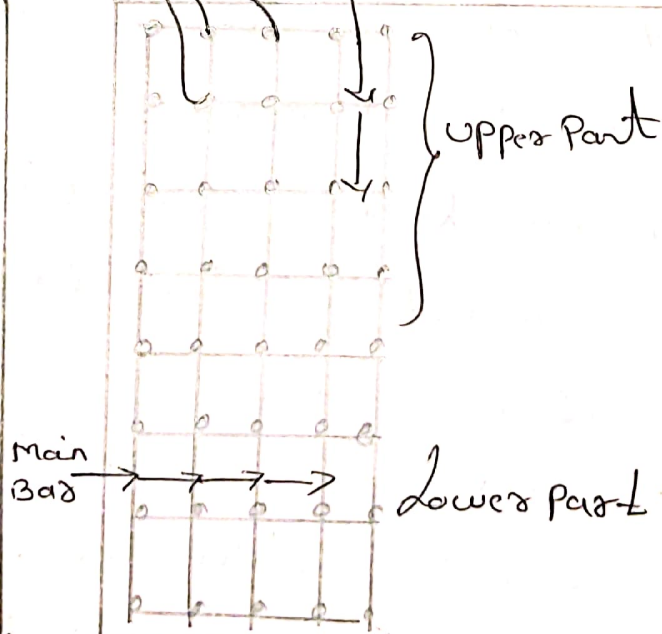 Upper Part
Main
Bar
Lower Part